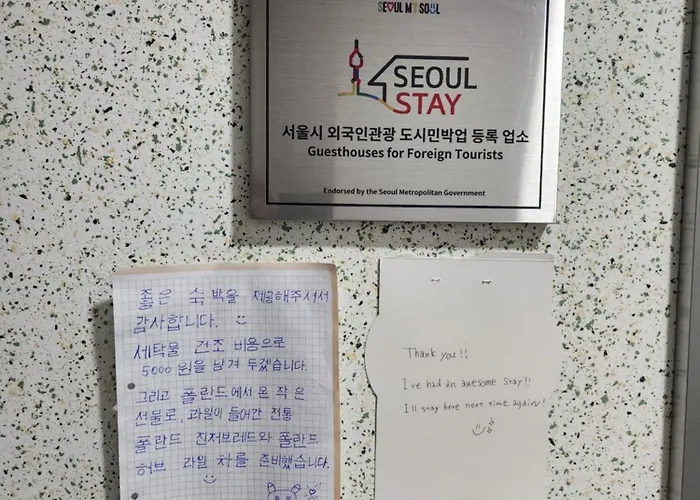 SEOUL MY SOUL
SEOUL
STAY
서울시 외국인관광 도시민박업 등록 업소
Guesthouses for Foreign Tourists
Endorsed by the Seoul Metropolitan Government
좋은 숙박을 제공해주셔서
감사합니다.
세탁물 건조 비용으로
5000원을 남겨 두겠습니다.
그리고 폴란드에서 온 작은
선물로, 과일이 들어간 전통
폴란드 진저브레드와 폴란드
허브 과일 차를 준비했습니다.
Thank you!!
I've had an awesome stay!!
I'll stay here next time again!